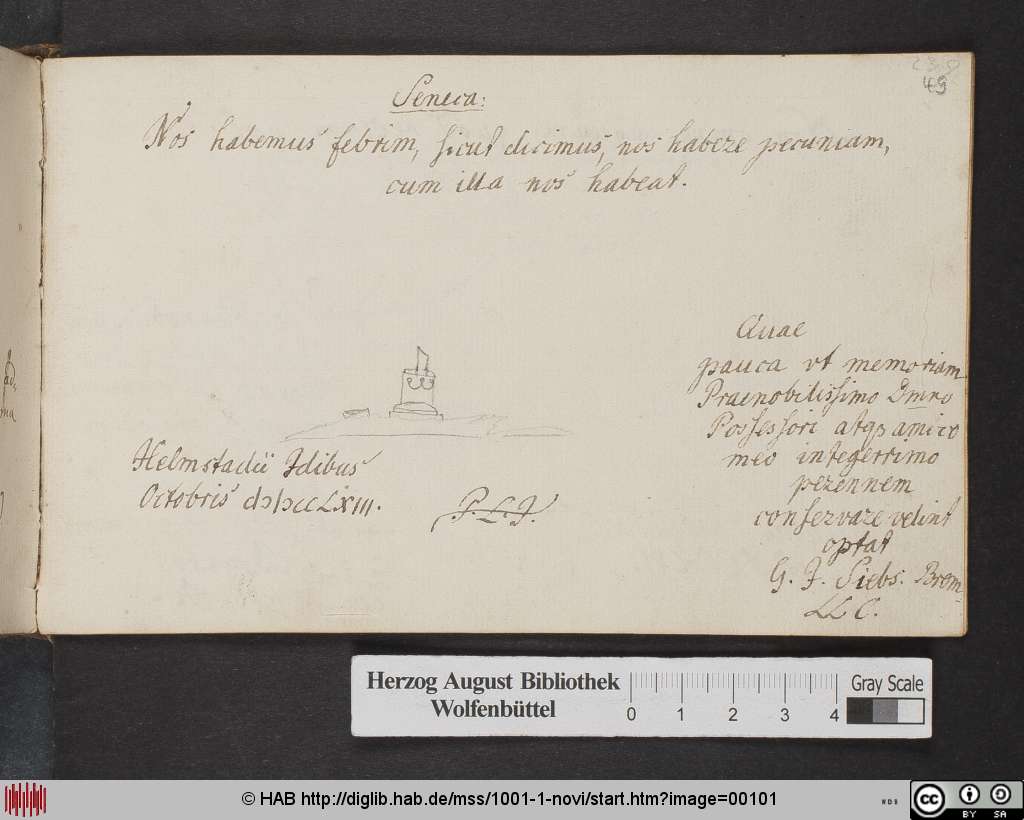 49
Seneca:
Nos habemus febrim, sicut dicimus, nos habere pecuniam,
cum illa nos habeat.
Quae
pauca vt memoriam
Praenobilissimo Dmno
Possessori atqȝ amico
meo integerrimo
perennem
conservare velint
optat
G. F. Siebs. Brem.
LLC.
Helmstadii Idibus
Octobris
Herzog August Bibliothek
Wolfenbüttel
0 1 2 3 4
Gray Scale
© HAB http://diglib.hab.de/mss/1001-1-novi/start.htm?image=00101
cc BY SA